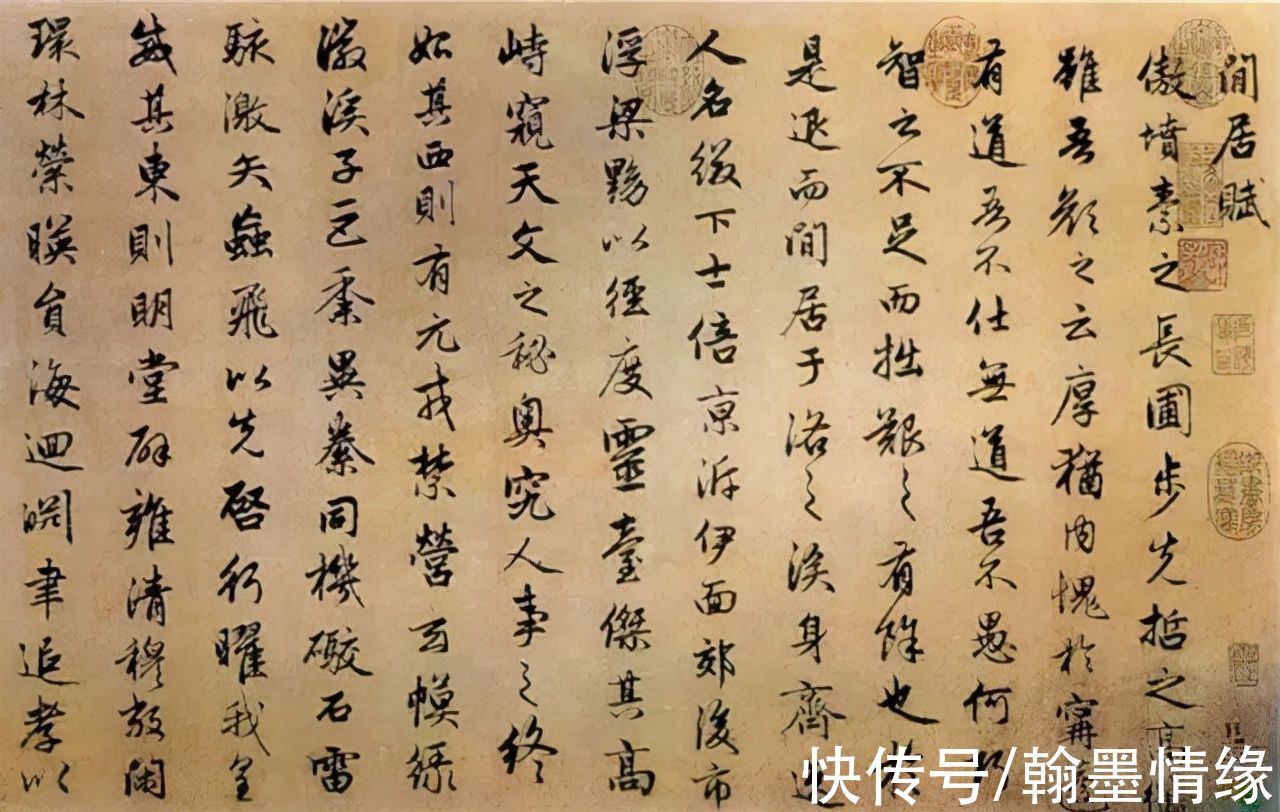 閒居賦
傲墳素之長圃步先哲之高
雖吾顏之云厚猶內愧於甯
有道吾不仕無道吾不愚何
智之不足而拙艱之有餘也
是退而閒居于洛之涘身齊逸
人名綴下士倍京泝伊面郊後市
浮梁黝以徑度靈臺傑其高
峙窺天文之秘奧究人事之終
始其西則有元戎禁營玄幙綠
徽溪子巨黍異絭同機礮石雷
駭激矢蝱飛以先啓行曜我皇
威其東則明堂辟雍清穆敞閑
環林縈暎員海迴淵聿追孝以
快传号/翰墨情缘